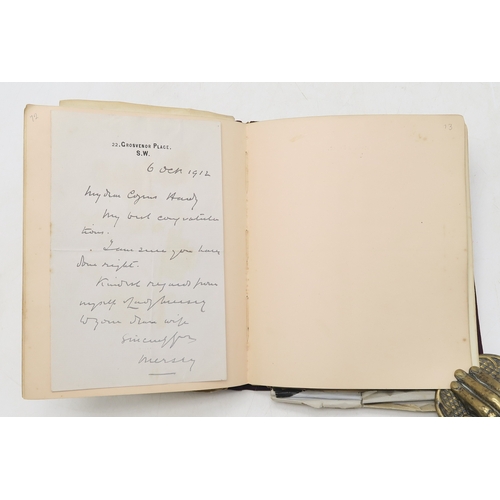 22, GROSVENOR PLACE,
S.W.
6 Oct 1912
My dear Cozens Hardy
My best congratula
tions.
I am sure you have
done right.
Kindest regards from
myself & Lady Mersey
to your dear wife
Sincerely yrs
Mersey